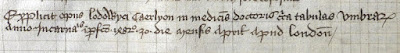 Explicit opus lodowyci Caerlyon in medicis doctoris circa tabulas umbrarum
Anno Incarnationis 1482 30 die mensis Aprilis apud london